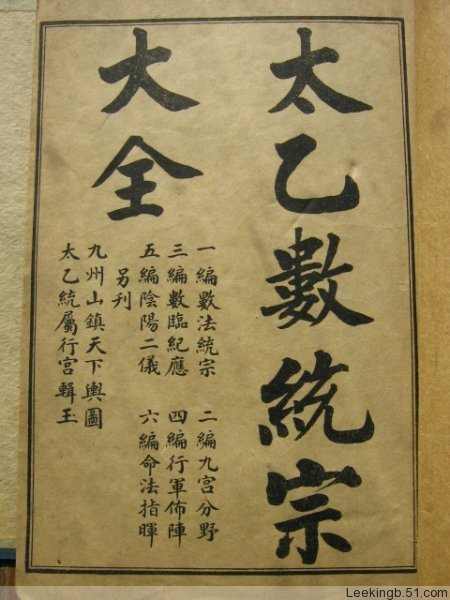 太乙數統宗
大全
一編數法統宗　二編九宫分野
三編數臨紀應　四編行軍佈陣
五編陰陽二儀　六編命法指暉
另刊
九州山鎮天下輿圖
太乙統屬行宫輯玉
Leekingb.51.com